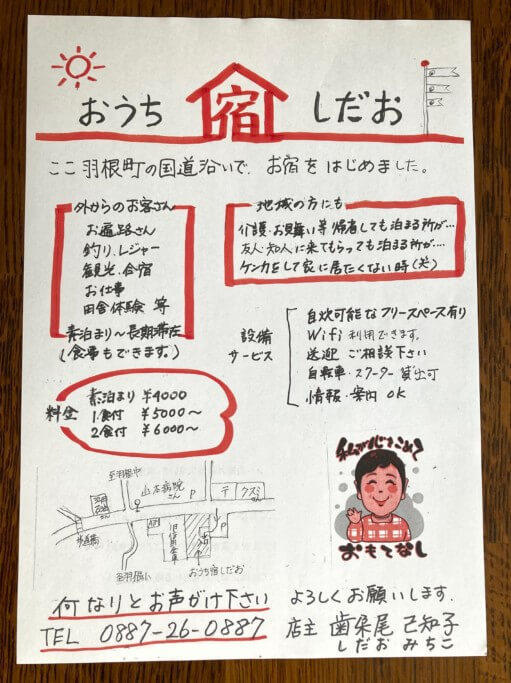 おうち 宿 しだお
ここ羽根町の国道沿いで、お宿をはじめました。
外からのお客さん
お遍路さん
釣り、レジャー
観光・合宿
お仕事
田舎体験 等
素泊まり〜長期滞在
(食事もできます。)
地域の方にも
介護・お見舞い等帰省しても泊まる所が…
友人・知人に来てもらっても泊まる所が…
ケンカをして家に居たくない時(犬)
設備
サービス
自炊可能なフリースペース有り
Wifi 利用できます。
送迎 ご相談下さい
自転車・スクーター 貸出可
情報・案内 OK
料金
素泊まり ¥4000
1食付 ¥5000〜
2食付 ¥6000〜
私が心をこめて
おもてなし
山本病院さん
P
歩道橋
旧
P
おうち宿しだお
何なりとお声がけ下さい
TEL 0887-26-0887
よろしくお願いします。
店主 歯朶尾 己知子
しだお みちこ